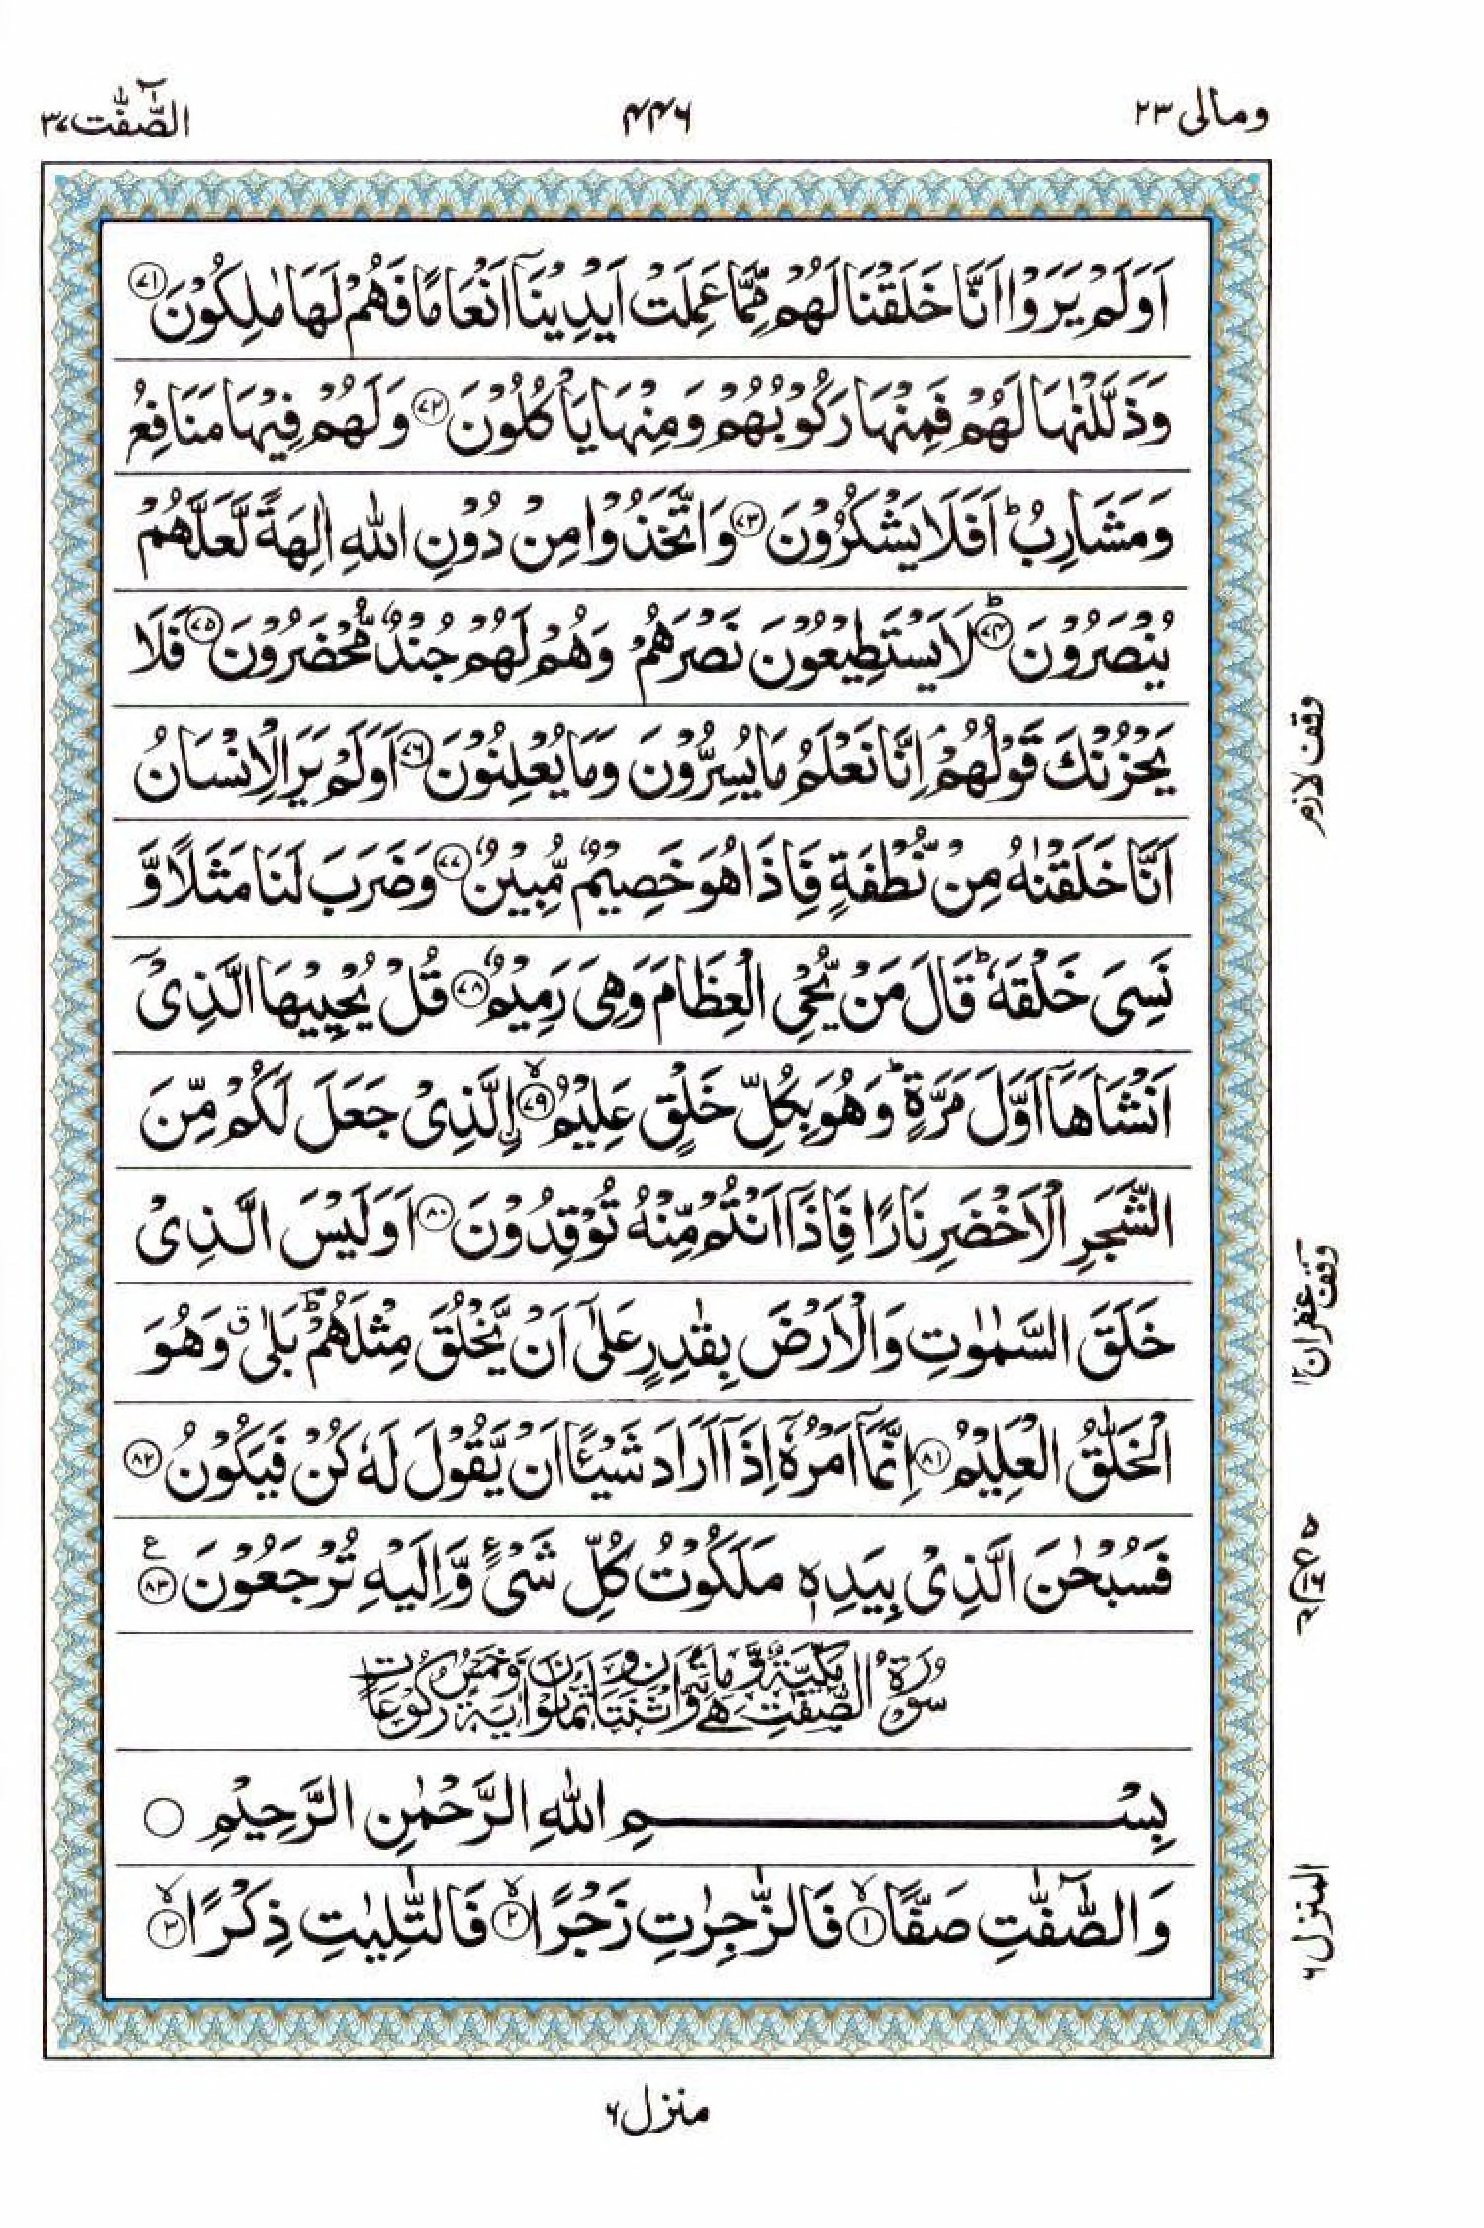 ومالی ٢٣
۴۴۶
الصّٰٓفّٰت ٣٧
اَوَلَمْ يَرَوْا اَنَّا خَلَقْنَا لَهُمْ مِّمَّا عَمِلَتْ اَيْدِيْنَاۤ اَنْعَامًا فَهُمْ لَهَا مٰلِكُوْنَ ﴿٧١﴾
وَذَلَّلْنٰهَا لَهُمْ فَمِنْهَا رَكُوْبُهُمْ وَمِنْهَا يَاْكُلُوْنَ ﴿٧٢﴾ وَلَهُمْ فِيْهَا مَنَافِعُ
وَمَشَارِبُ ؕ اَفَلَا يَشْكُرُوْنَ ﴿٧٣﴾ وَاتَّخَذُوْا مِنْ دُوْنِ اللّٰهِ اٰلِهَةً لَّعَلَّهُمْ
يُنْصَرُوْنَ ؕ﴿٧٤﴾ لَا يَسْتَطِيْعُوْنَ نَصْرَهُمْ وَهُمْ لَهُمْ جُنْدٌ مُّحْضَرُوْنَ ﴿٧٥﴾ فَلَا
يَحْزُنْكَ قَوْلُهُمْ ۘ اِنَّا نَعْلَمُ مَا يُسِرُّوْنَ وَمَا يُعْلِنُوْنَ ﴿٧٦﴾ اَوَلَمْ يَرَ الْاِنْسَانُ
اَنَّا خَلَقْنٰهُ مِنْ نُّطْفَةٍ فَاِذَا هُوَ خَصِيْمٌ مُّبِيْنٌ ﴿٧٧﴾ وَضَرَبَ لَنَا مَثَلًا وَّ
نَسِىَ خَلْقَهٗ ؕ قَالَ مَنْ يُّحْىِ الْعِظَامَ وَهِىَ رَمِيْمٌ ﴿٧٨﴾ قُلْ يُحْيِيْهَا الَّذِىْۤ
اَنْشَاَهَاۤ اَوَّلَ مَرَّةٍ ؕ وَهُوَ بِكُلِّ خَلْقٍ عَلِيْمُ ۙ﴿٧٩﴾ اۨلَّذِىْ جَعَلَ لَكُمْ مِّنَ
الشَّجَرِ الْاَخْضَرِ نَارًا فَاِذَاۤ اَنْتُمْ مِّنْهُ تُوْقِدُوْنَ ﴿٨٠﴾ اَوَلَيْسَ الَّذِىْ
خَلَقَ السَّمٰوٰتِ وَالْاَرْضَ بِقٰدِرٍ عَلٰۤى اَنْ يَّخْلُقَ مِثْلَهُمْ ؕ بَلٰى ق وَهُوَ
الْخَلّٰقُ الْعَلِيْمُ ﴿٨١﴾ اِنَّمَاۤ اَمْرُهٗۤ اِذَاۤ اَرَادَ شَيْئًا اَنْ يَّقُوْلَ لَهٗ كُنْ فَيَكُوْنُ ﴿٨٢﴾
فَسُبْحٰنَ الَّذِىْ بِيَدِهٖ مَلَكُوْتُ كُلِّ شَىْءٍ وَّاِلَيْهِ تُرْجَعُوْنَ ع﴿٨٣﴾
سُوْرَةُ الصّٰفّٰتِ مَكِّيَّةٌ وَّهِىَ مِائَةٌ وَّاثْنَتَانِ وَثَمَانُوْنَ اٰيَةً وَّخَمْسُ رُكُوْعَاتٍ
بِسْمِ اللّٰهِ الرَّحْمٰنِ الرَّحِيْمِ
وَالصّٰٓفّٰتِ صَفًّا ۙ﴿١﴾ فَالزّٰجِرٰتِ زَجْرًا ۙ﴿٢﴾ فَالتّٰلِيٰتِ ذِكْرًا ۙ﴿٣﴾
وقف لازم
وقف غفران
المنزل ٦
منزل ٦